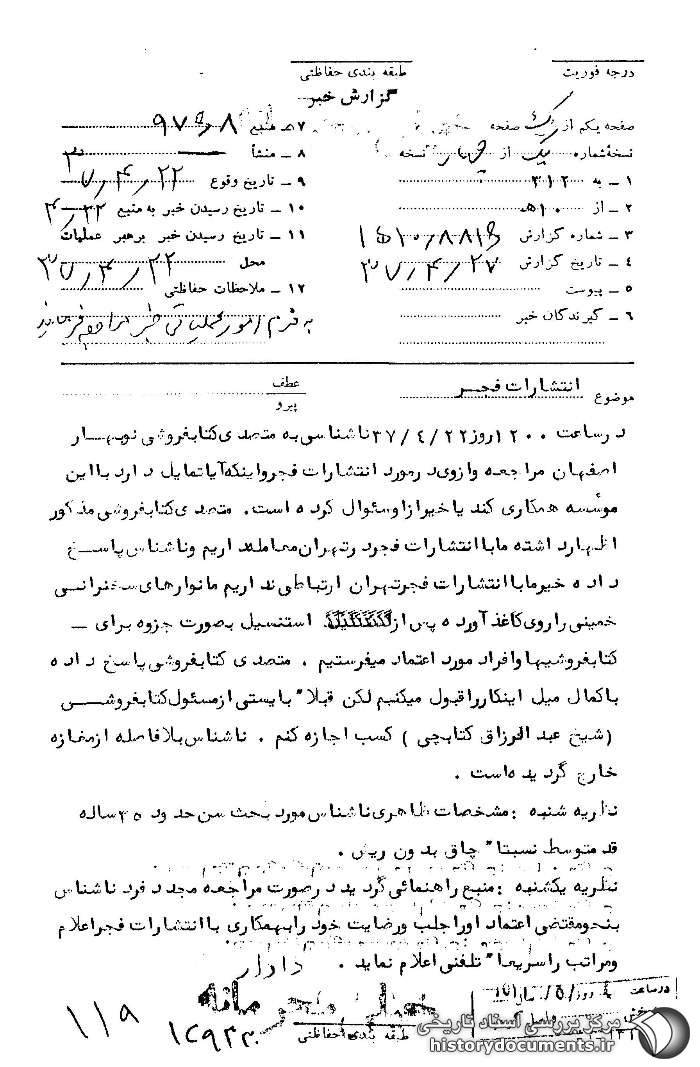 درجه فوریت
طبقه بندی حفاظتی
گزارش خبر
صفحه یکم از یک صفحه
نسخهٔ شماره یک از چهار نسخه
۱ - به ۳۱۲
۲ - از ۱۰ هـ
۳ - شماره گزارش
۴ - تاریخ گزارش ۳۷/۴/۲۷
۵ - پیوست
۶ - گیرندگان خبر
۷ - منبع
۸ - منشأ
۹ - تاریخ وقوع ۳۷/۴/۲۲
۱۰ - تاریخ رسیدن خبر به منبع ۴/۲۲
۱۱ - تاریخ رسیدن خبر برهبر عملیات
محل ۳۷/۴/۲۲
۱۲ - ملاحظات حفاظتی
به فرم امور عملیاتی خبر مراجعه فرمایید
موضوع انتشارات فجر
عطف
پیرو
در ساعت ۱۲۰۰ روز ۳۷/۴/۲۲ ناشناسی به متصدی کتابفروشی نوبهار
اصفهان مراجعه و از وی در مورد انتشارات فجر و اینکه آیا تمایل دارد با این
مؤسسه همکاری کند یا خیر از او سئوال کرده است. متصدی کتابفروشی مذکور
اظهار داشته ما با انتشارات فجر در تهران معامله داریم و ناشناس پاسخ
داده خیر ما با انتشارات فجر تهران ارتباطی نداریم ما نوارهای سخنرانی
خمینی را روی کاغذ آورده پس از استنسیل بصورت جزوه برای -
کتابفروشیها و افراد مورد اعتماد میفرستیم. متصدی کتابفروشی پاسخ داده
با کمال میل اینکار را قبول میکنیم لکن قبلا" بایستی از مسئول کتابفروشی
(شیخ عبدالرزاق کتابچی) کسب اجازه کنم. ناشناس بلافاصله از مغازه
خارج گردیده است.
نظریه شنبه : مشخصات ظاهری ناشناس مورد بحث سن حدود ۳۵ ساله
قد متوسط نسبتا" چاق بدون ریش.
نظریه یکشنبه : منبع راهنمائی گردید در صورت مراجعه مجدد فرد ناشناس
بنحو مقتضی اعتماد او را جلب و رضایت خود را بهمکاری با انتشارات فجر اعلام
و مراتب را سریعا" تلفنی اعلام نماید. داوار
در ساعت
خیلی محرمانه
طبقه بندی حفاظتی
۱۱۹
مرکز بررسی اسناد تاریخی
historydocuments.ir